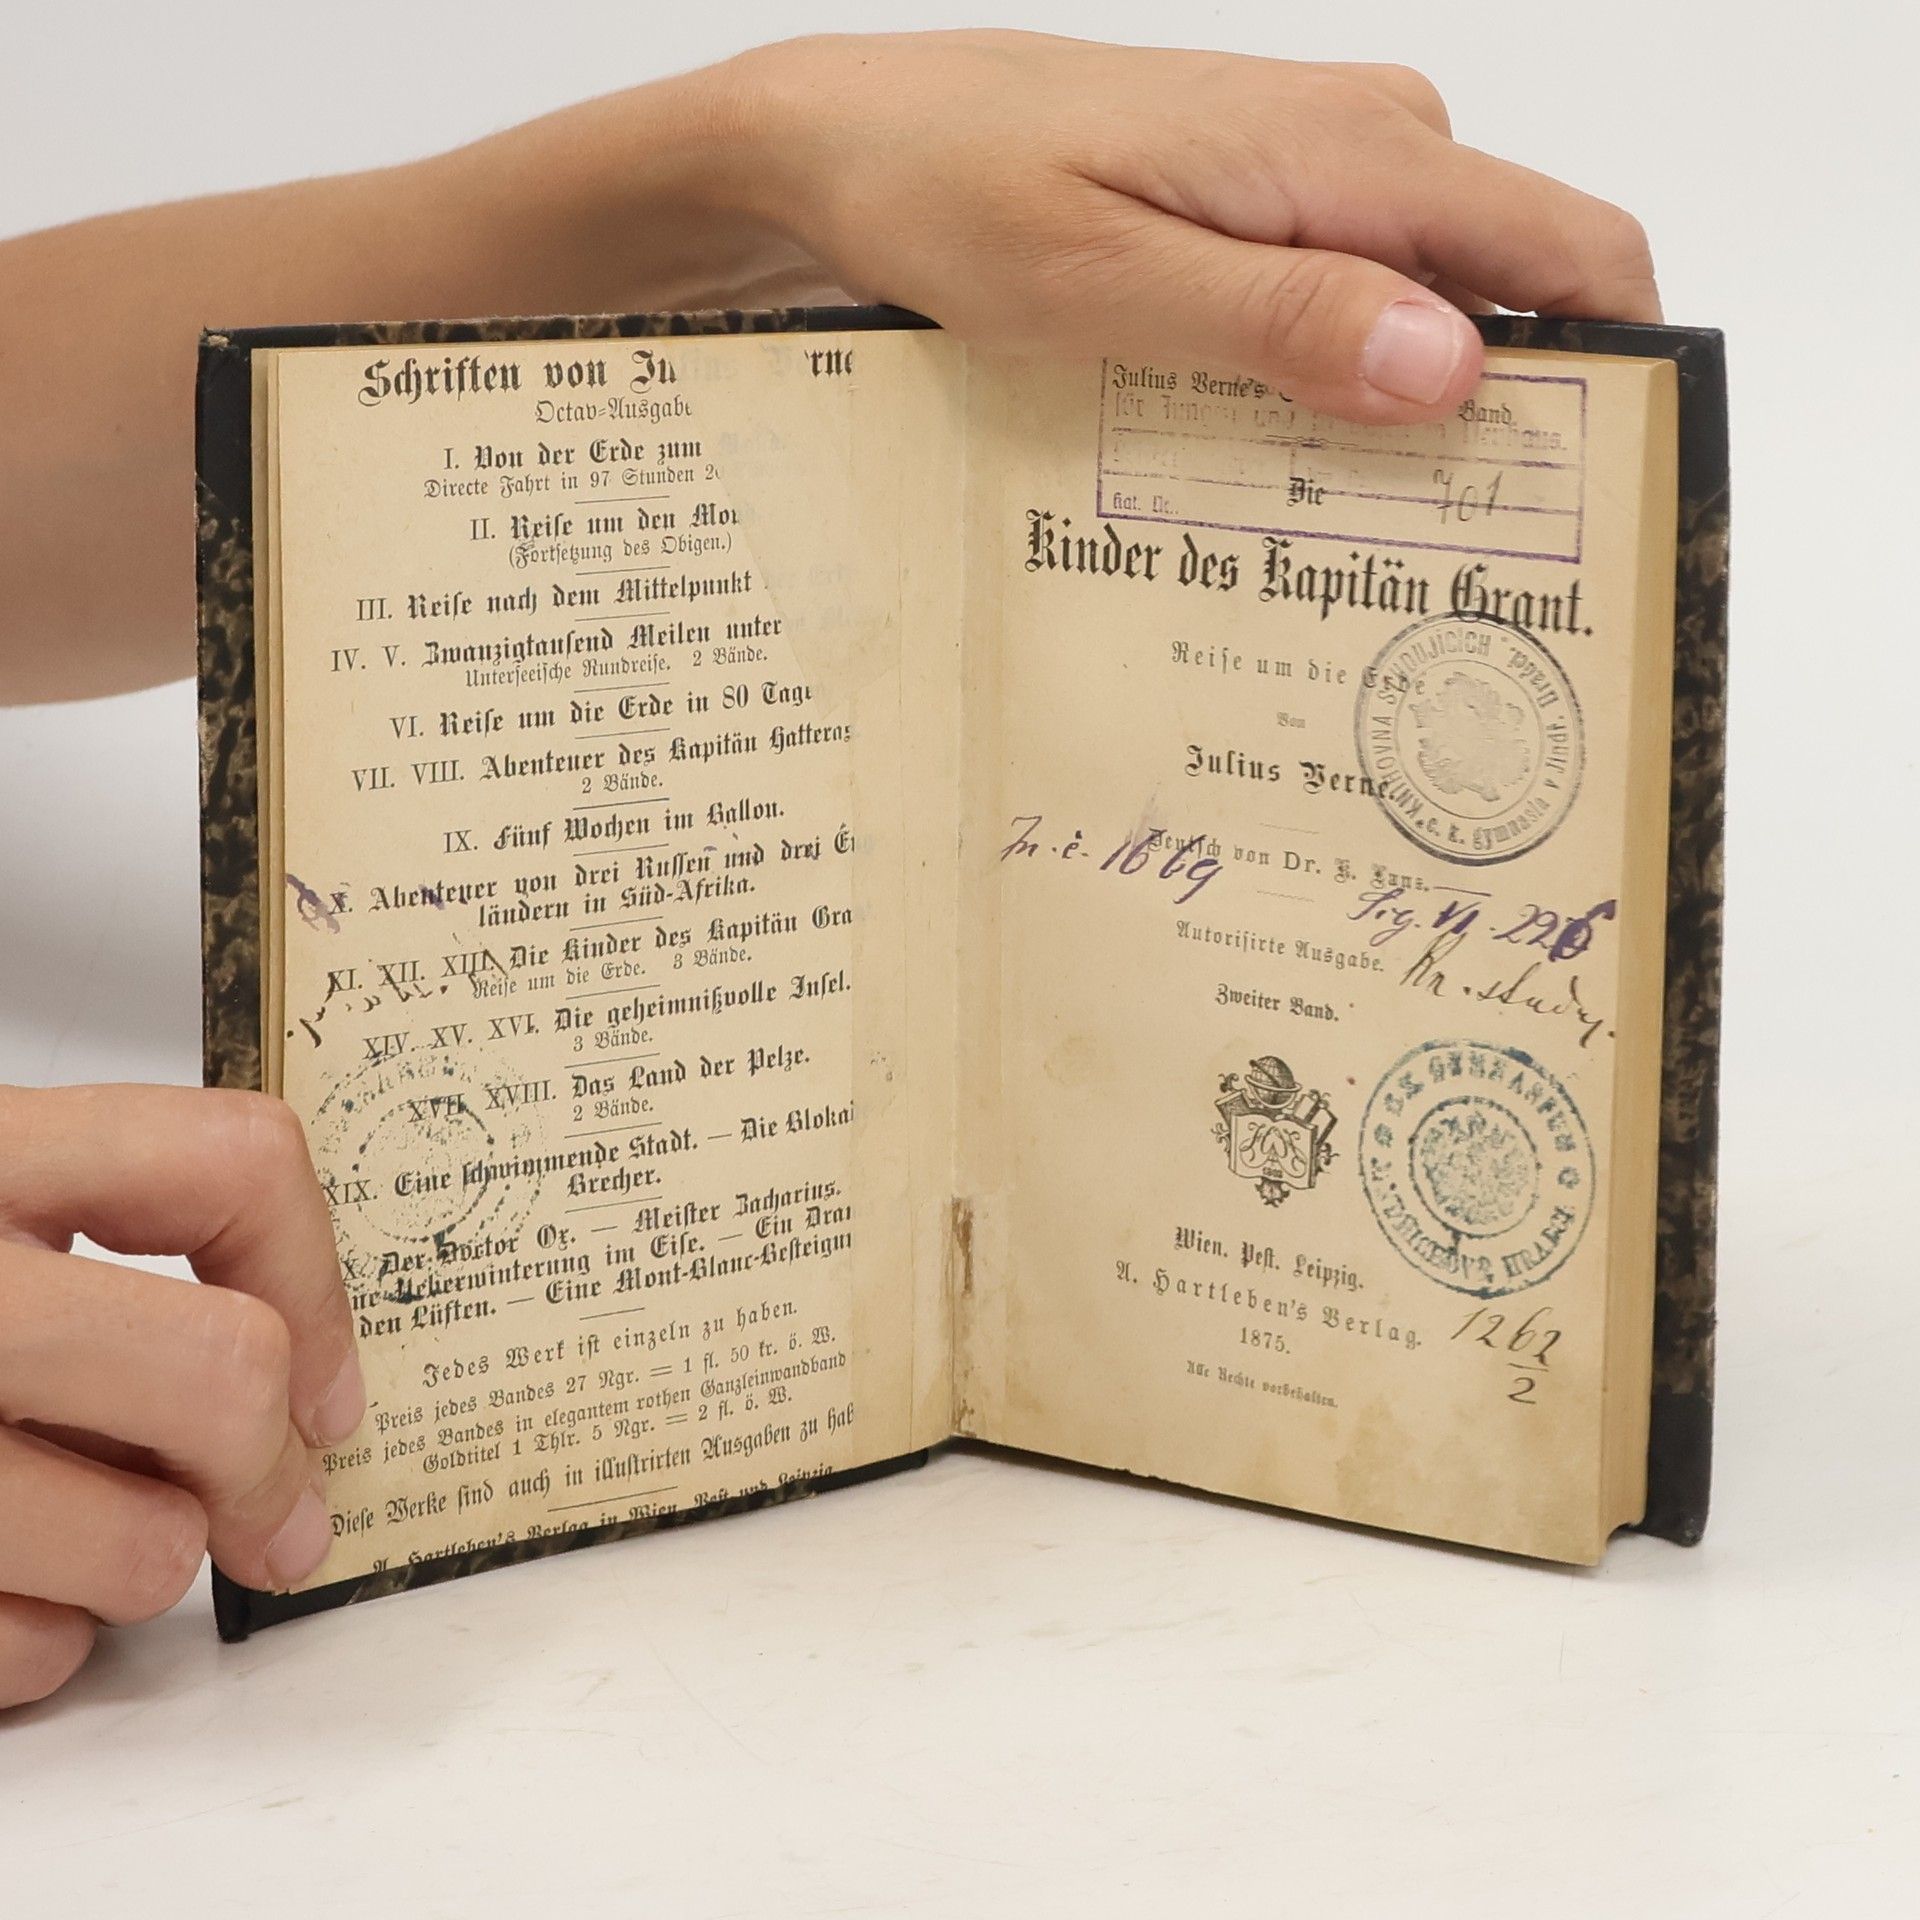 Schriften von Ju rne
Octav-Ausgabe
I. Von der Erde zum
Directe Fahrt in 97 Stunden 20
II. Reise um den Mon
(Fortsetzung des Obigen.)
III. Reise nach dem Mittelpunkt
IV. V. Zwanzigtausend Meilen unter
Unterseeische Rundreise. 2 Bände.
VI. Reise um die Erde in 80 Tage
VII. VIII. Abenteuer des Kapitän Hatteras
2 Bände.
IX. Fünf Wochen im Ballon.
X. Abenteuer von drei Russen und drei En
ländern in Süd-Afrika.
XI. XII. XIII. Die Kinder des Kapitän Gra
Reise um die Erde. 3 Bände.
XIV. XV. XVI. Die geheimnißvolle Insel.
3 Bände.
XVII. XVIII. Das Land der Pelze.
2 Bände.
XIX. Eine schwimmende Stadt. — Die Blokad
Brecher.
X. Der Doctor Ox. — Meister Zacharius.
ne Ueberwinterung im Eise. — Ein Dram
den Lüften. — Eine Mont-Blanc-Besteigun
Jedes Werk ist einzeln zu haben.
Preis jedes Bandes 27 Ngr. = 1 fl. 50 kr. ö. W.
Preis jedes Bandes in elegantem rothen Ganzleinwandband
Goldtitel 1 Thlr. 5 Ngr. = 2 fl. ö. W.
Diese Werke sind auch in illustrirten Ausgaben zu hab
A. Hartleben's Verlag in Wien, Pest und Leipzig.
Julius Verne's Band.
Kat. Nr. 701.
Die
Kinder des Kapitän Grant.
Reise um die Erde
Von
Julius Verne.
KNIHOVNA STUDUJÍCÍCH
c. k. gymnasia v Jindř. Hradci
In. č. 1669
Deutsch von Dr. K. Lanz.
Sig. VI. 226
Autorisirte Ausgabe.
Kn. study.
Zweiter Band.
Wien. Pest. Leipzig.
A. Hartleben's Verlag.
1875.
1262
2
Alle Rechte vorbehalten.